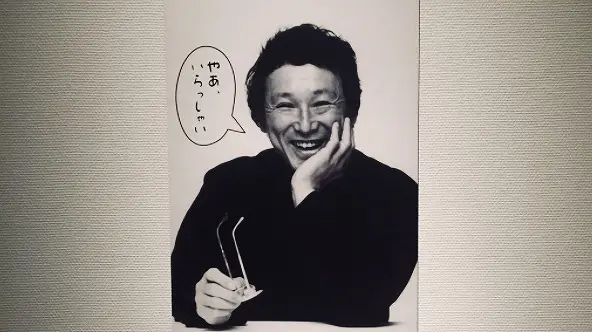 やあ、
いらっしゃい